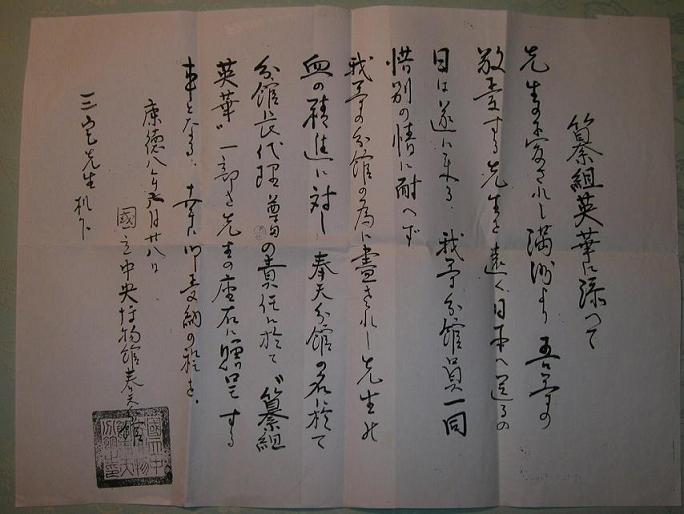 纂組英華に添へて
先生の愛されし満洲より 吾等の
敬愛する先生を遠く日本へ送るの
日は遂に来る 我等分館員一同
惜別の情に耐へず
我等の分館の為に盡されし先生の
血の精進に対し 奉天分館の名に於て
分館長代理 の責任に於て〝纂組
英華〟一部を先生の座右に贈呈する
事となる 幸に御受納の程を、
康徳八年 月廿八日
國立中央博物館奉天分館
三宅先生机下